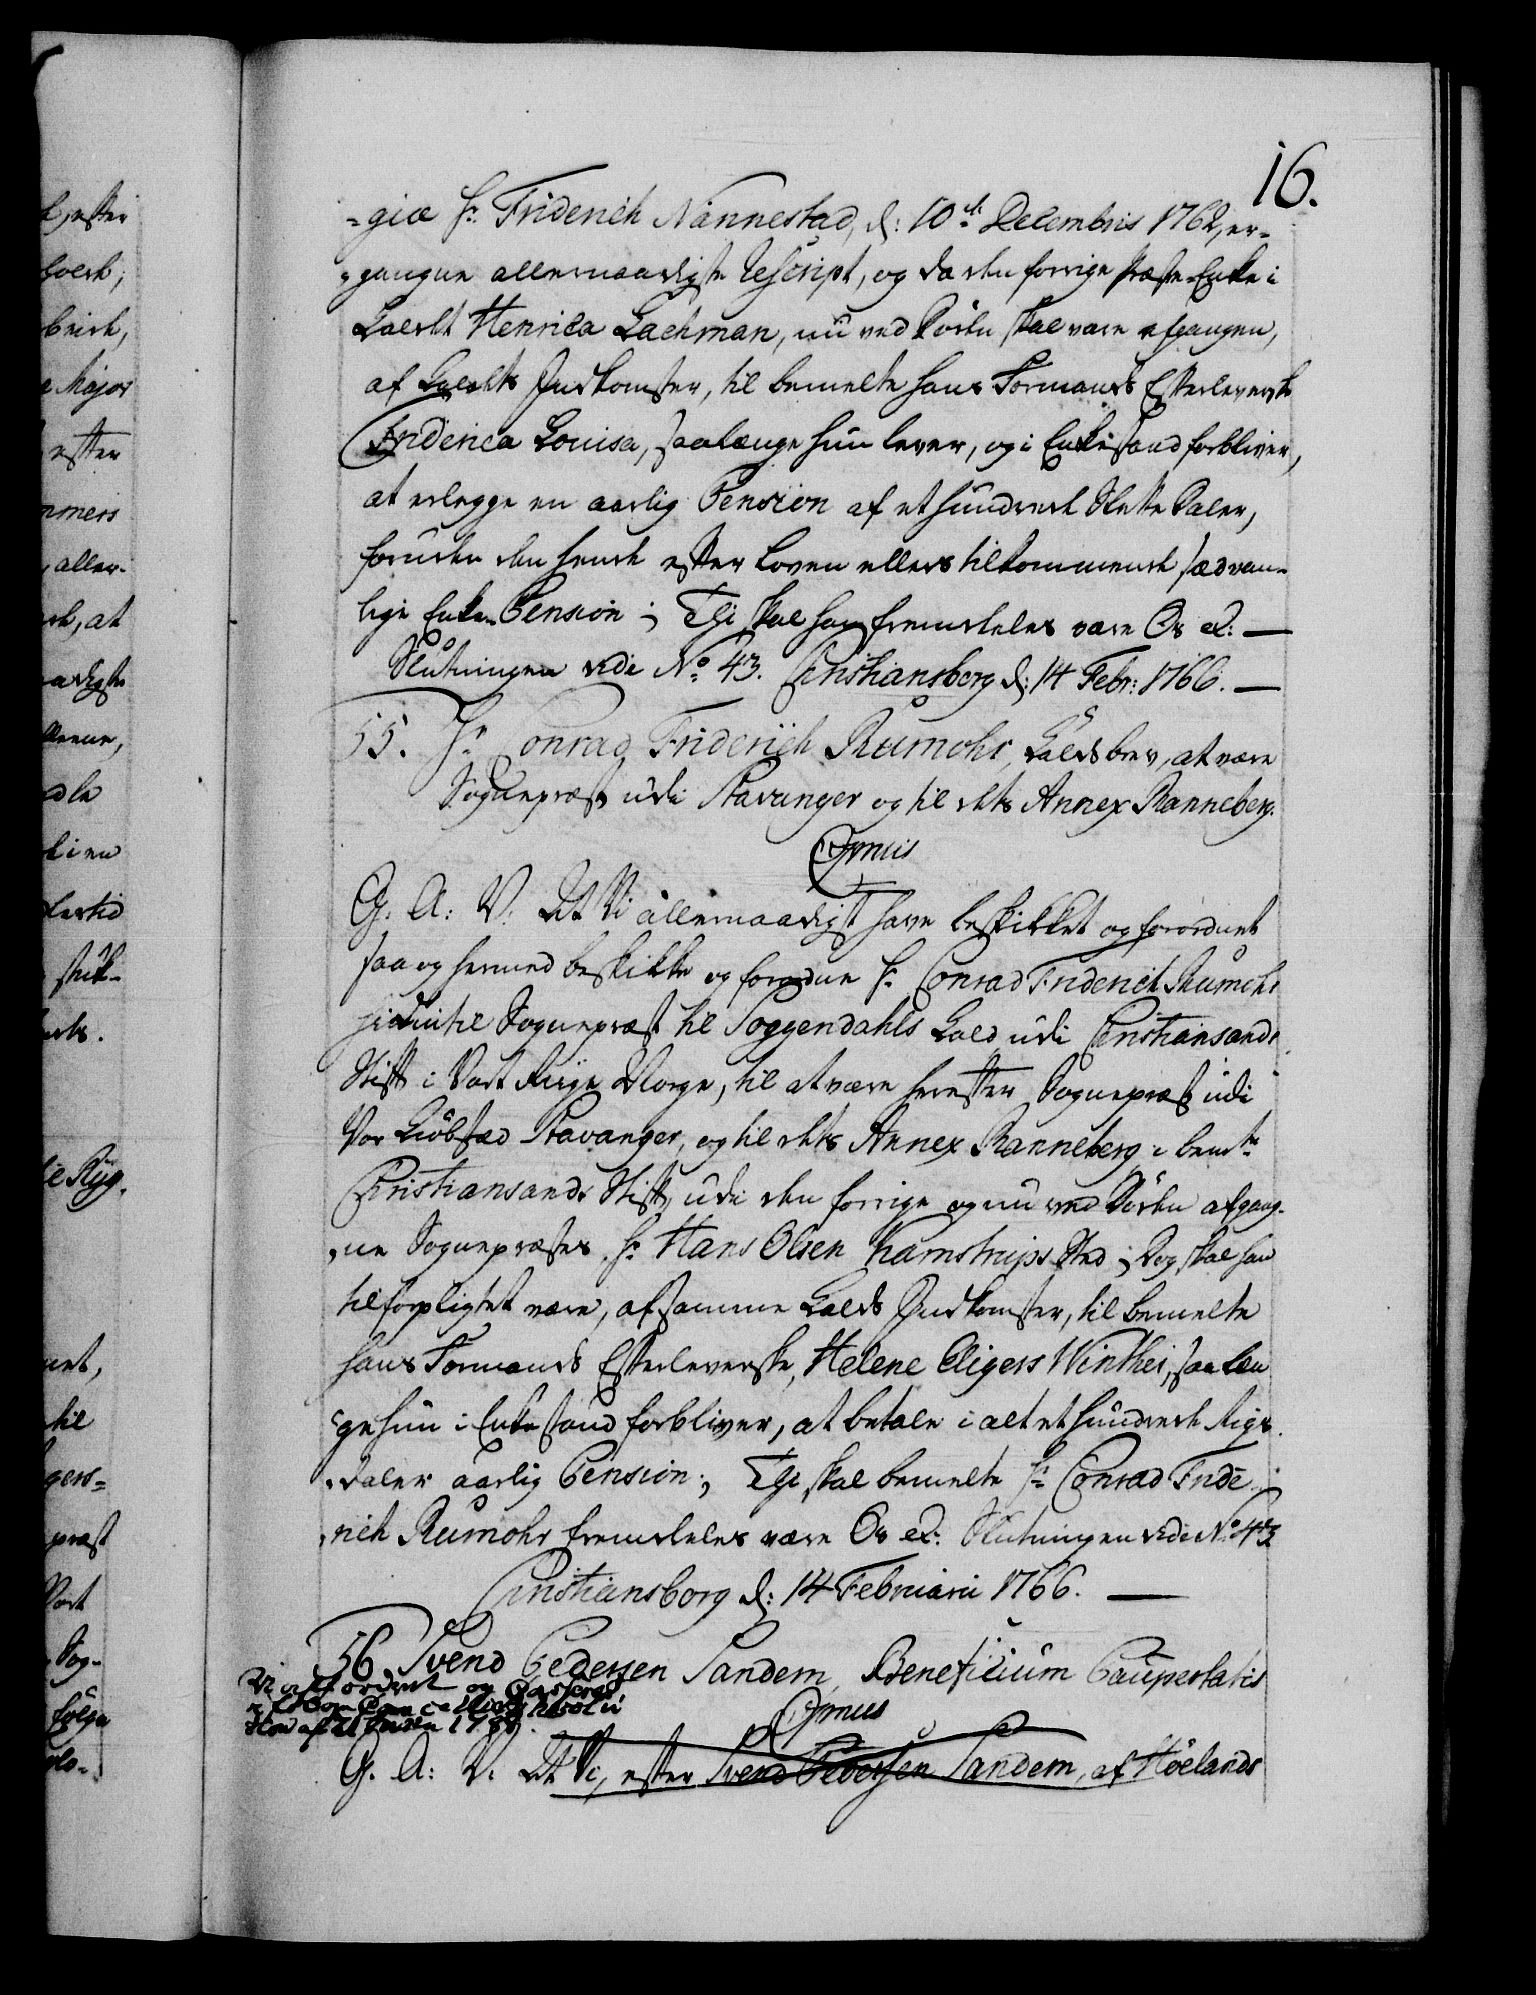 16.
-giæ Hr. Friderich Nannestad, d: 10de Decembris 1762, er-
-gangne allernaadigste Rescript, og da den forrige Præste-Enke i
Kaldet Henrica Lachman, nu ved Døden skal være afgangen,
af Kaldets Indkomster, til bemelte hans Formands Efterleverske
Friderica Louisa, saalænge hun lever, og i Enkestand forbliver,
at erlegge en aarlig Pension af et hundrede Slette Daler,
foruden den hende efter Loven ellers tilkommende sædvan-
lige Enke-Pension; Thi skal han fremdeles være Os &c: —
Slutningen vide No 43. Christiansborg d: 14 Febr: 1766. —
55. Hr Conrad Friderich Rumohr, Kaldsbrev, at være
Sognepræst udi Stavanger og til dets Annex Ranneberg.
Gratis
G. A: V: At Vi allernaadigst have beskikket og forordnet
saa og hermed beskikke og forordne Hr. Conrad Friderich Rumohr
hidintil Sognepræst til Soggendahls Kald udi Christiansands
Stift i Vort Rige Norge, til at være herefter Sognepræst udi
Vor Kiøbstad Stavanger, og til dets Annex Ranneberg i bemte
Christiansands Stift, udi den forrige og nu ved Døden afgang-
-ne Sognepræstes Hr. Hans Olsen Kamstrups Sted; Dog skal han
tilforpligtet være, af samme Kalds Indkomster, til bemelte
hans Formands Efterleverske, Helene Eligers Winther, saa læn
-ge hun i Enkestand forbliver, at betale i alt et hundrede Rigs-
-daler aarlig Pension; Thi skal bemelte Hr. Conrad Fride-
-rich Rumohr fremdeles være Os &c: Slutningen vide No 43
Christiansborg d: 14 Februarii 1766. —
56. Svend Pedersen Sandem, Beneficium Paupertatis
Gratis
G. A: V: At Vi, efter Svend Pedersen Sandem, af Høelands